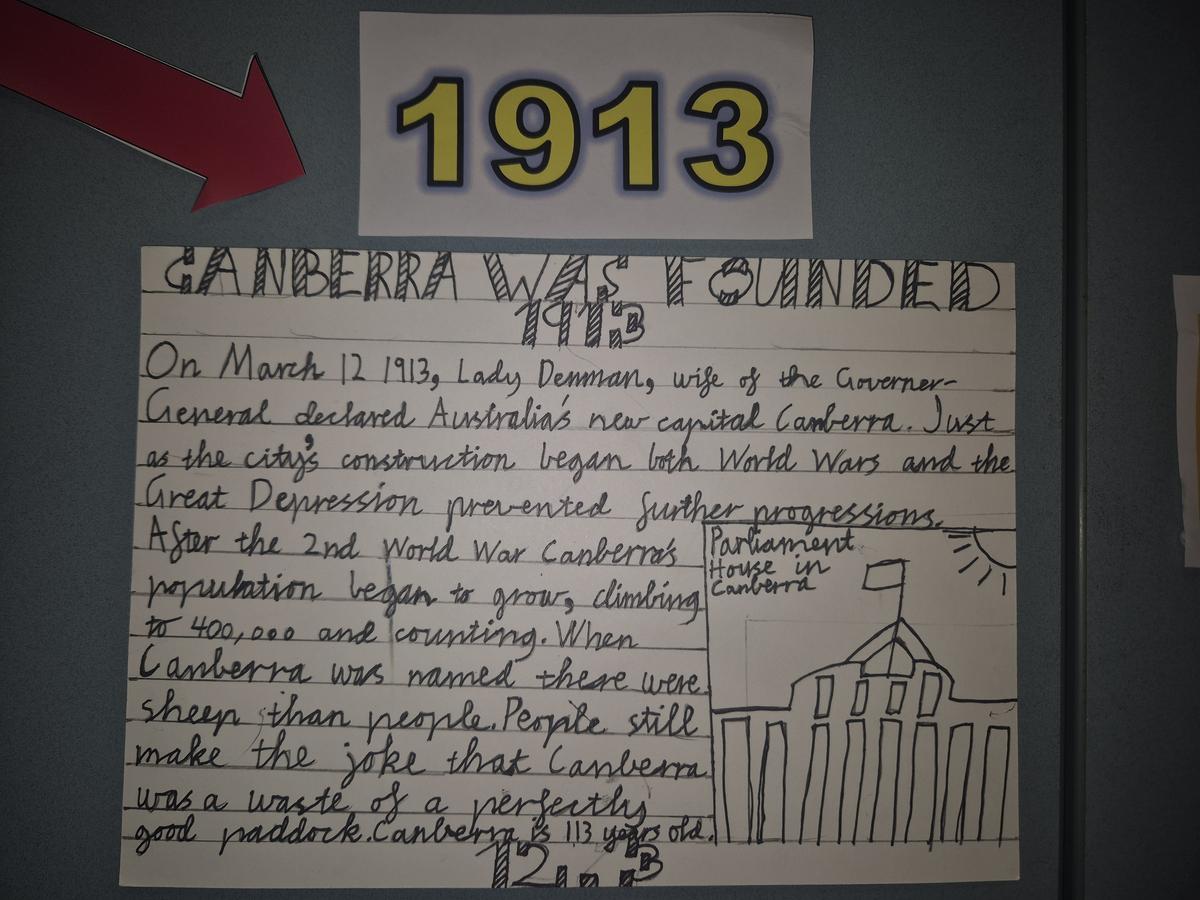 1913
CANBERRA WAS FOUNDED
1913
On March 12 1913, Lady Denman, wife of the Governer-
General declared Australia's new capital Canberra. Just
as the city's construction began both World Wars and the
Great Depression prevented further progressions.
After the 2nd World War Canberra's
population began to grow, climbing
to 400,000 and counting. When
Canberra was named there were
sheep than people. People still
make the joke that Canberra
was a waste of a perfectly
good paddock. Canberra is 113 years old.
Parliament
House in
Canberra